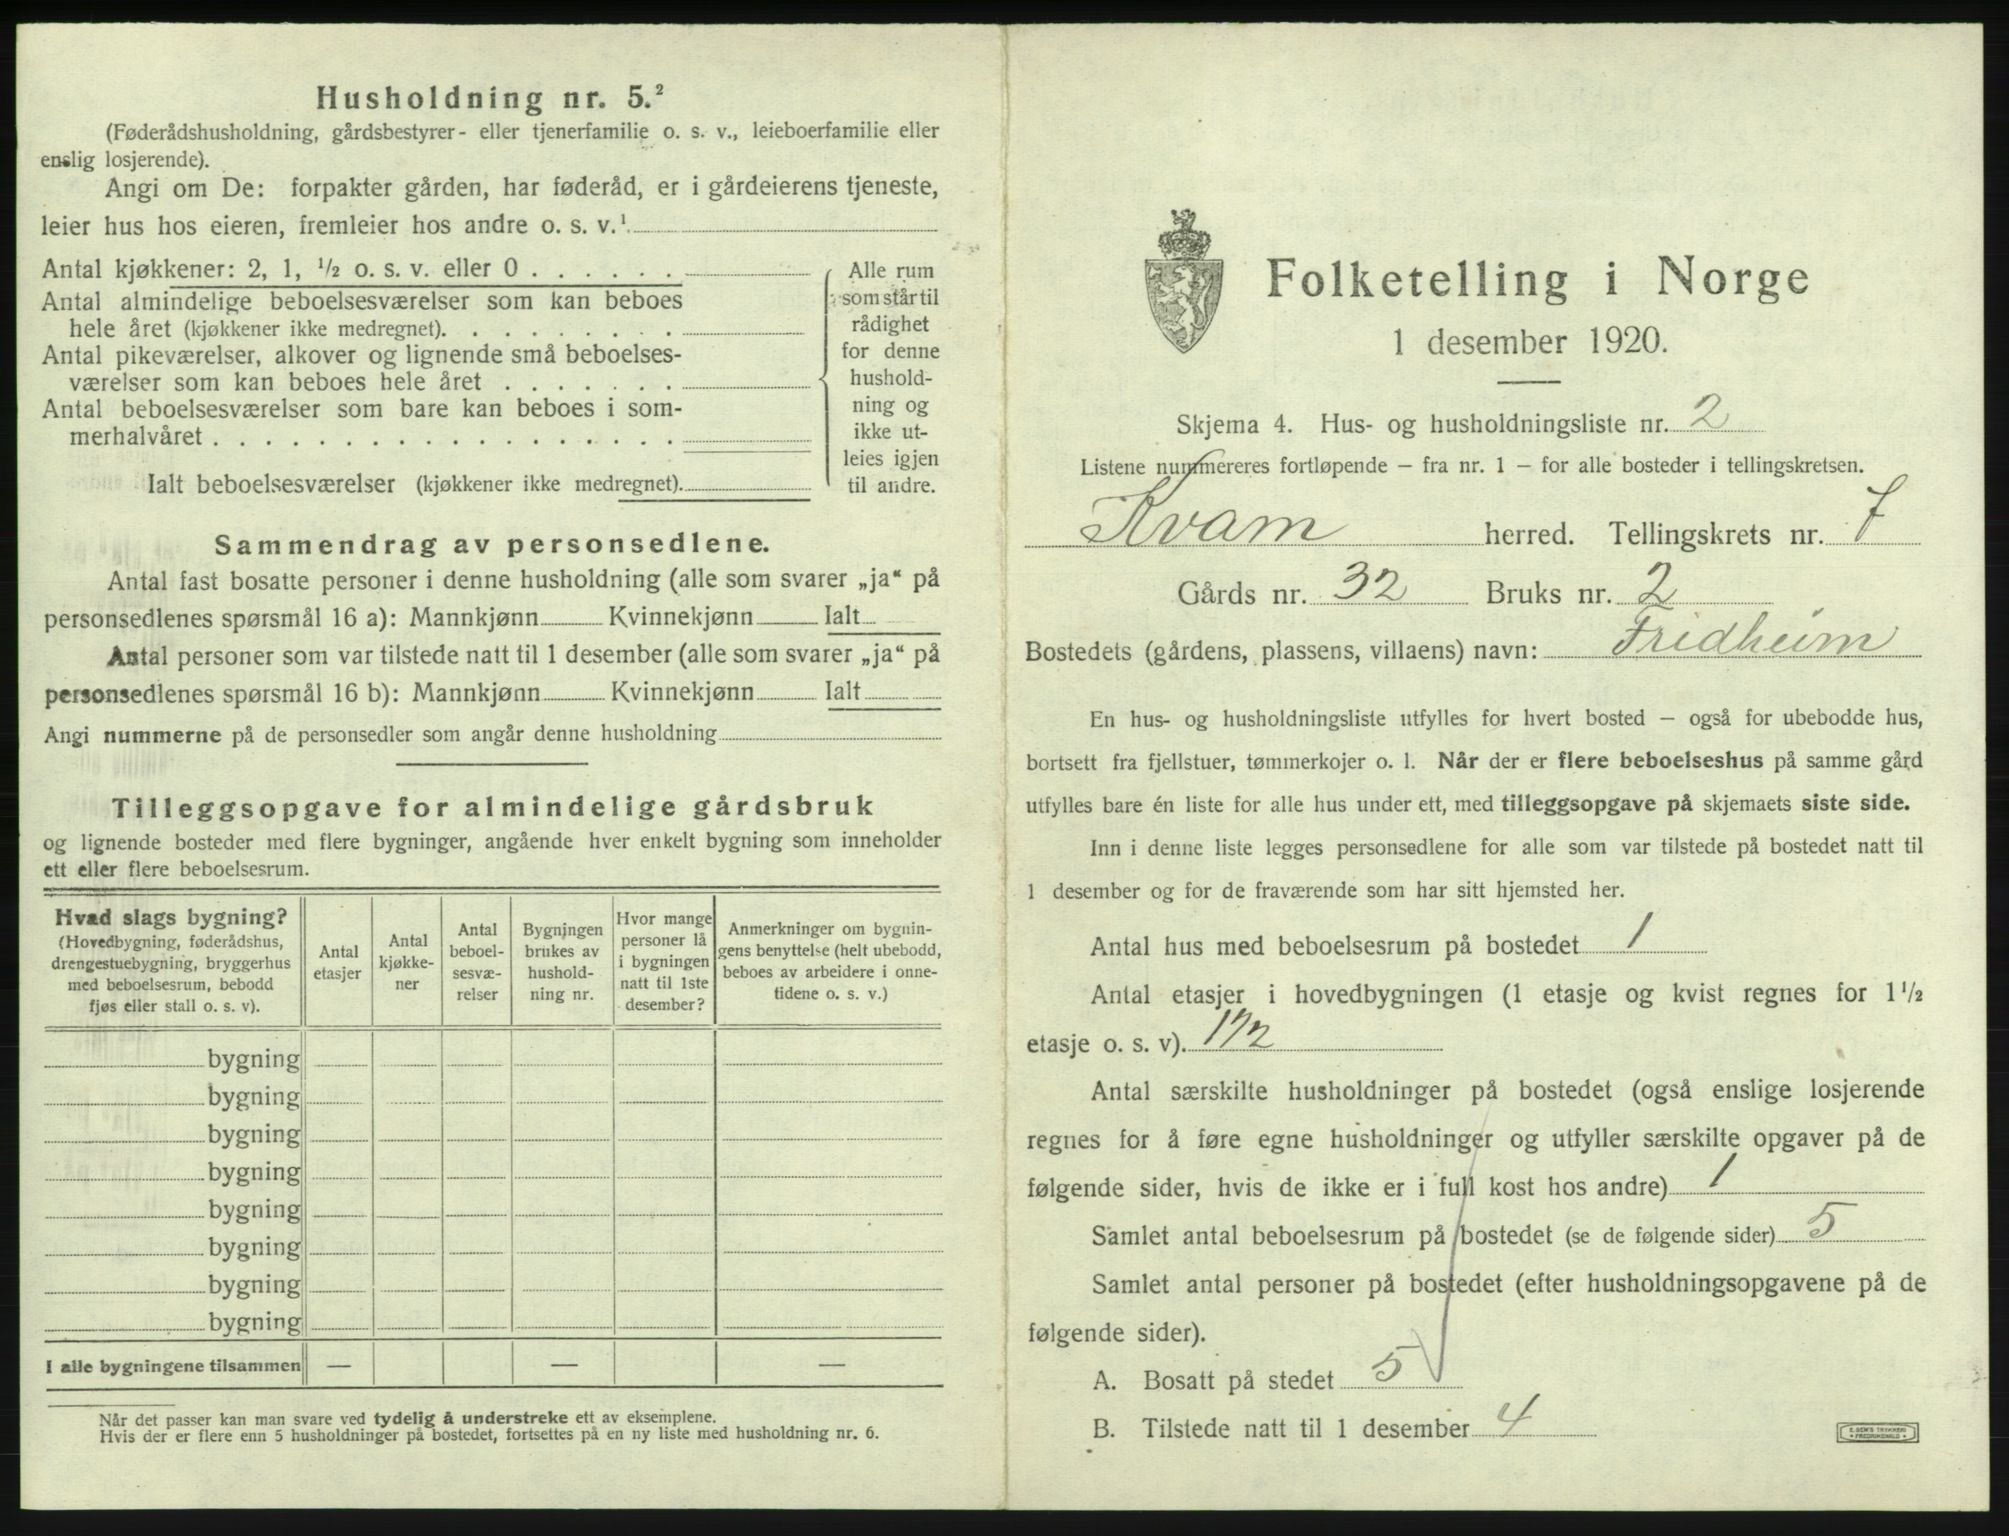 Husholdning nr. 5.²
(Føderådshusholdning, gårdsbestyrer- eller tjenerfamilie o. s. v., leieboerfamilie eller
enslig losjerende).
Angi om De: forpakter gården, har føderåd, er i gårdeierens tjeneste,
leier hus hos eieren, fremleier hos andre o. s. v.¹
Antal kjøkkener: 2, 1, ½ o. s. v. eller 0 . . . . . .
Antal almindelige beboelsesværelser som kan beboes
hele året (kjøkkener ikke medregnet). . . . . . . . .
Antal pikeværelser, alkover og lignende små beboelses-
værelser som kan beboes hele året . . . . . . .
Antal beboelsesværelser som bare kan beboes i som-
merhalvåret . . . . . . . . . . . . . . . . . .
Ialt beboelsesværelser (kjøkkener ikke medregnet).
Alle rum
som står til
rådighet
for denne
hushold-
ning og
ikke ut-
leies igjen
til andre.
Sammendrag av personsedlene.
Antal fast bosatte personer i denne husholdning (alle som svarer „ja“ på
personsedlenes spørsmål 16 a): Mannkjønn Kvinnekjønn Ialt
Antal personer som var tilstede natt til 1 desember (alle som svarer „ja“ på
personsedlenes spørsmål 16 b): Mannkjønn Kvinnekjønn Ialt
Angi nummerne på de personsedler som angår denne husholdning
Tilleggsopgave for almindelige gårdsbruk
og lignende bosteder med flere bygninger, angående hver enkelt bygning som inneholder
ett eller flere beboelsesrum.
Hvad slags bygning?
(Hovedbygning, føderådshus,
drengestuebygning, bryggerhus
med beboelsesrum, bebodd
fjøs eller stall o. s. v).
Antal
etasjer
Antal
kjøkke-
ner
Antal
beboel-
sesvæ-
relser
Bygningen
brukes av
hushold-
ning nr.
Hvor mange
personer lå
i bygningen
natt til 1ste
desember?
Anmerkninger om bygnin-
gens benyttelse (helt ubebodd,
beboes av arbeidere i onne-
tidene o. s. v.)
bygning
bygning
bygning
bygning
bygning
bygning
bygning
bygning
I alle bygningene tilsammen — — —
Når det passer kan man svare ved tydelig å understreke ett av eksemplene.
Hvis der er flere enn 5 husholdninger på bostedet, fortsettes på en ny liste med husholdning nr. 6.
Folketelling i Norge
1 desember 1920.
Skjema 4. Hus- og husholdningsliste nr. 2
Listene nummereres fortløpende – fra nr. 1 – for alle bosteder i tellingskretsen.
Kvam herred. Tellingskrets nr. 7
Gårds nr. 32 Bruks nr. 2
Bostedets (gårdens, plassens, villaens) navn: Fridheim
En hus- og husholdningsliste utfylles for hvert bosted – også for ubebodde hus,
bortsett fra fjellstuer, tømmerkojer o. l. Når der er flere beboelseshus på samme gård
utfylles bare én liste for alle hus under ett, med tilleggsopgave på skjemaets siste side.
Inn i denne liste legges personsedlene for alle som var tilstede på bostedet natt til
1 desember og for de fraværende som har sitt hjemsted her.
Antal hus med beboelsesrum på bostedet 1
Antal etasjer i hovedbygningen (1 etasje og kvist regnes for 1½
etasje o. s. v). 1½
Antal særskilte husholdninger på bostedet (også enslige losjerende
regnes for å føre egne husholdninger og utfyller særskilte opgaver på de
følgende sider, hvis de ikke er i full kost hos andre) 1
Samlet antal beboelsesrum på bostedet (se de følgende sider) 5
Samlet antal personer på bostedet (efter husholdningsopgavene på de
følgende sider).
A. Bosatt på stedet 5
B. Tilstede natt til 1 desember 4